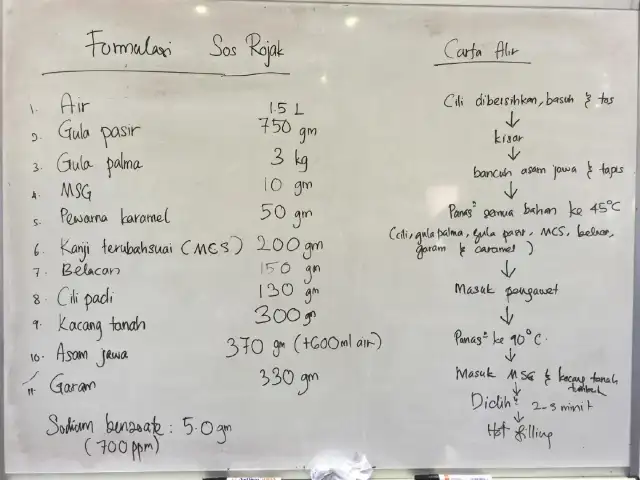 Formulasi Sos Rojak
1. Air 1.5 L
2. Gula pasir 750 gm
3. Gula palma 3 kg
4. MSG 10 gm
5. Pewarna karamel 50 gm
6. Kanji terubahsuai (MCS) 200 gm
7. Belacan 150 gm
8. Cili padi 130 gm
9. Kacang tanah 300 gm
10. Asam jawa 370 gm (+600ml air)
11. Garam 330 gm
Sodium benzoate : 5.0 gm
(700 ppm)
Carta Alir
Cili dibersihkan, basuh & tos
↓
kisar
↓
bancuh asam jawa & tapis
↓
Panas² semua bahan ke 45°C
(cili, gula palma, gula pasir, MCS, belacan,
garam & caramel)
↓
Masuk pengawet
↓
Panas² ke 90°C.
↓
Masuk MSG & kacang tanah
↓
Didih² 2-3 minit
↓
Hot filling